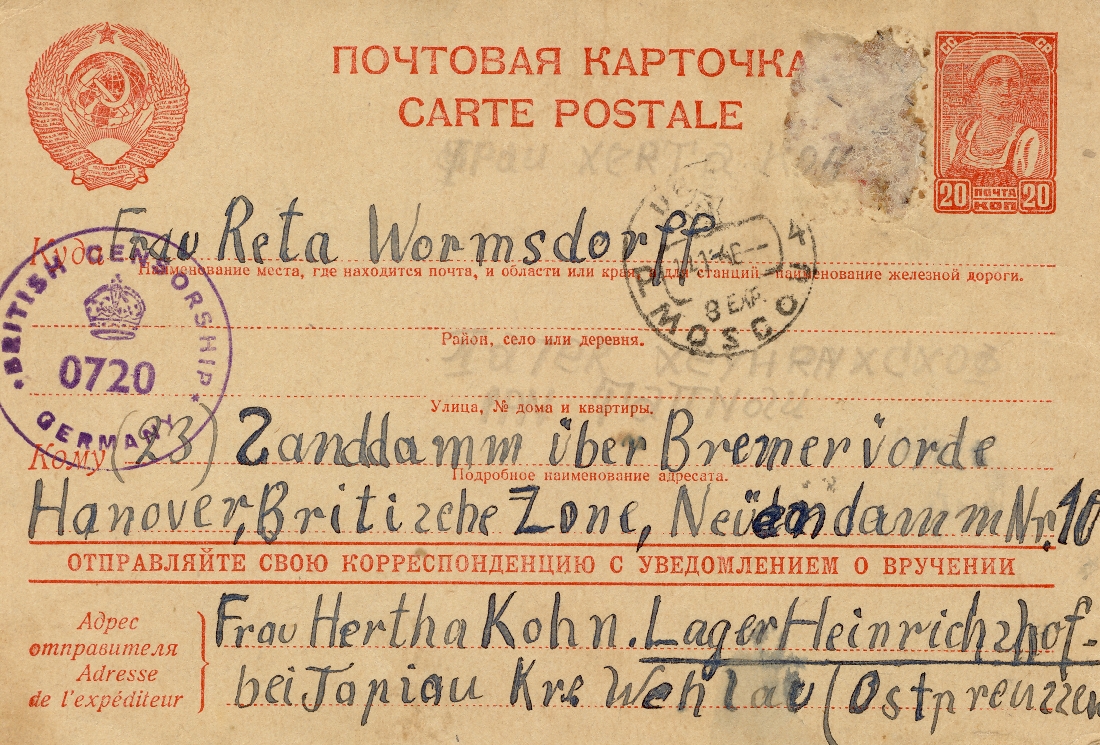 ПОЧТОВАЯ КАРТОЧКА
CARTE POSTALE
СС СР
20 ПОЧТА КОП 20
Куда Frau Reta Wormsdorff
Наименование места, где находится почта, и области или края, а для станций наименование железной дороги.
BRITISH CENSORSHIP
0720
GERMANY
MOSCOU
8 EXP.
Район, село или деревня.
Улица, № дома и квартиры.
Кому (23) Zanddamm über Bremervörde
Подробное наименование адресата.
Hanover, Britizche Zone, Neuendamm Nr. 10
ОТПРАВЛЯЙТЕ СВОЮ КОРРЕСПОНДЕНЦИЮ С УВЕДОМЛЕНИЕМ О ВРУЧЕНИИ
Адрес отправителя
Adresse de l'expéditeur
Frau Hertha Kohn. Lager Heinrichzhof-
bei Tapiau Krz. Wehlau (Ostpreuzzen